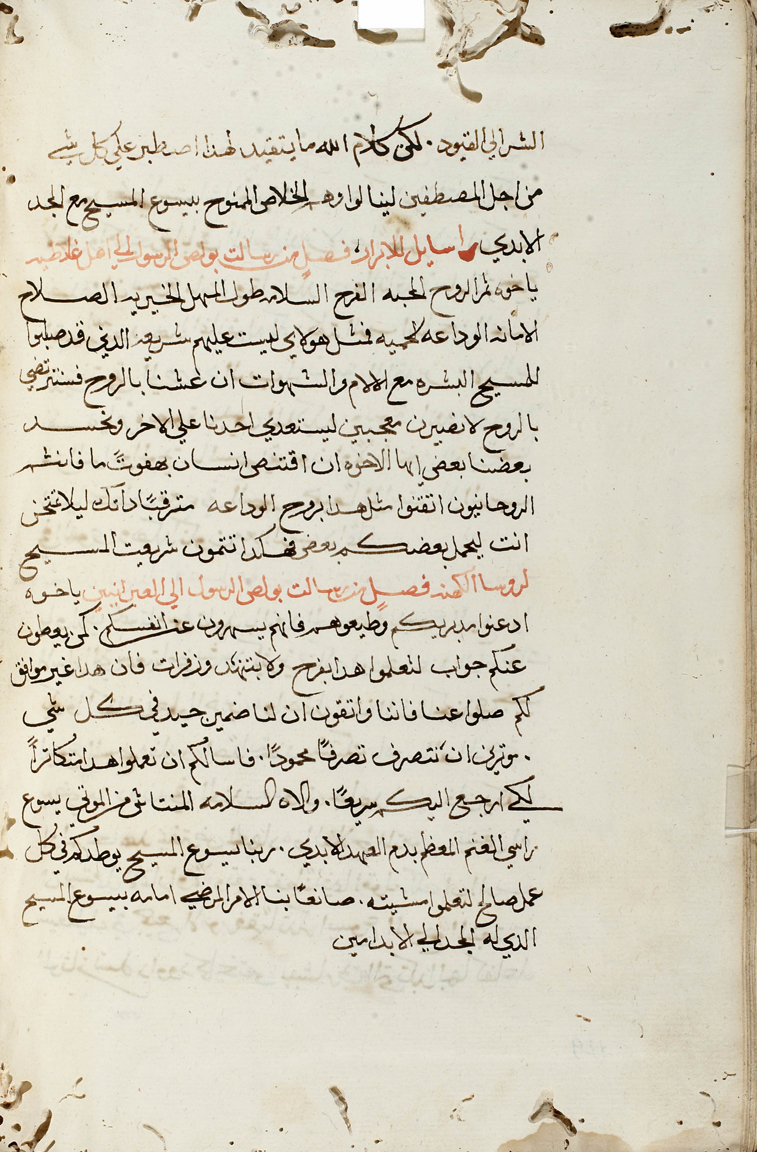 الشر الي القيود . لكن كلام الله ما يتقيد لهذا اصطبر علي كل شي
من اجل المصطفين لينالوا وهم الخلاص الممنوح بيسوع المسيح مع المجد
الابدي رسايل للابرار فصل من رسالت بولص الرسول الي اهل غلاطيه
ياخوه ثمر الروح المحبه الفرح السلامه طول المهل الخيريه الصلاح
الامانه الوداعه الحميه فمثل هولاي ليست عليهم شريعه الذين قد صلبوا
للمسيح البشره مع الالام والشهوات ان عشنا بالروح فسنرتضي
بالروح لا نصيرن معجبين ليستعدي احدنا علي الاخر ونحسد
بعضنا بعض ايها الاخوه ان اقتنص انسان بهفوتٍ ما فانتم
الروحانيون اتقنوا مثل هدا بروح الوداعه مترقبًا داتك ليلا تمتحن
انت ليحمل بعضكم بعض فهكدا تتمون شريعت المسيح
لروسا الكهنه فصل من رسالت بولص الرسول الي العبرانيين ياخوه
ادعنوا لمدبريكم وطيعوهم فانهم يسهرون عن انفسكم . كمن يعطون
عنكم جواب لتعلموا هدا بفرح ولا بتنهدٍ وزفرات فان هدا غير موافق
لكم صلوا عنا فاننا واتقون ان لنا ضمير جيد في كل شي
. موترين ان نتصرف تصرفًا محمودًا . فاسالكم ان تعملوا هدا متكاترًا
لكي ارجع اليكم سريعًا . والاه السلامه المنتاش من الموتي يسوع
راعي الغنم المعظم بدم العهد الابدي . ربنا يسوع المسيح يوطدكم في كل
عمل صالح لتعلموا مشيته . صانعًا بنا الامر المرضي امامه بيسوع المسيح
الذي له المجد الي الابد امين